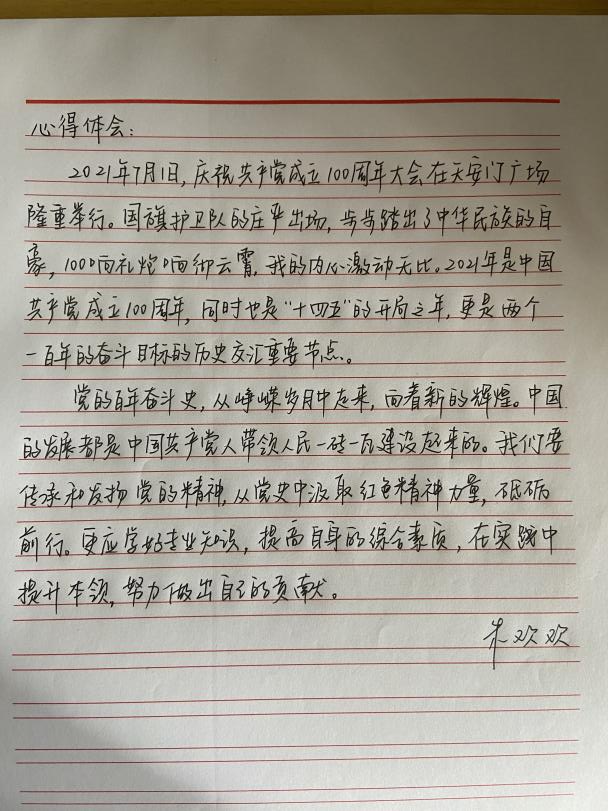 心得体会：
2021年7月1日，庆祝共产党成立100周年大会在天安门广场
隆重举行。国旗护卫队的庄严出场，步步踏出了中华民族的自
豪，100响礼炮响彻云霄，我的内心激动无比。2021年是中国
共产党成立100周年，同时也是“十四五”的开局之年，更是两个
一百年的奋斗目标的历史交汇重要节点。
党的百年奋斗史，从峥嵘岁月中走来，向着新的辉煌。中国
的发展都是中国共产党人带领人民一砖一瓦建设起来的。我们要
传承和发扬党的精神，从党史中汲取红色精神力量，砥砺
前行。更应学好专业知识，提高自身的综合素质，在实践中
提升本领，努力做出自己的贡献。
朱欢欢